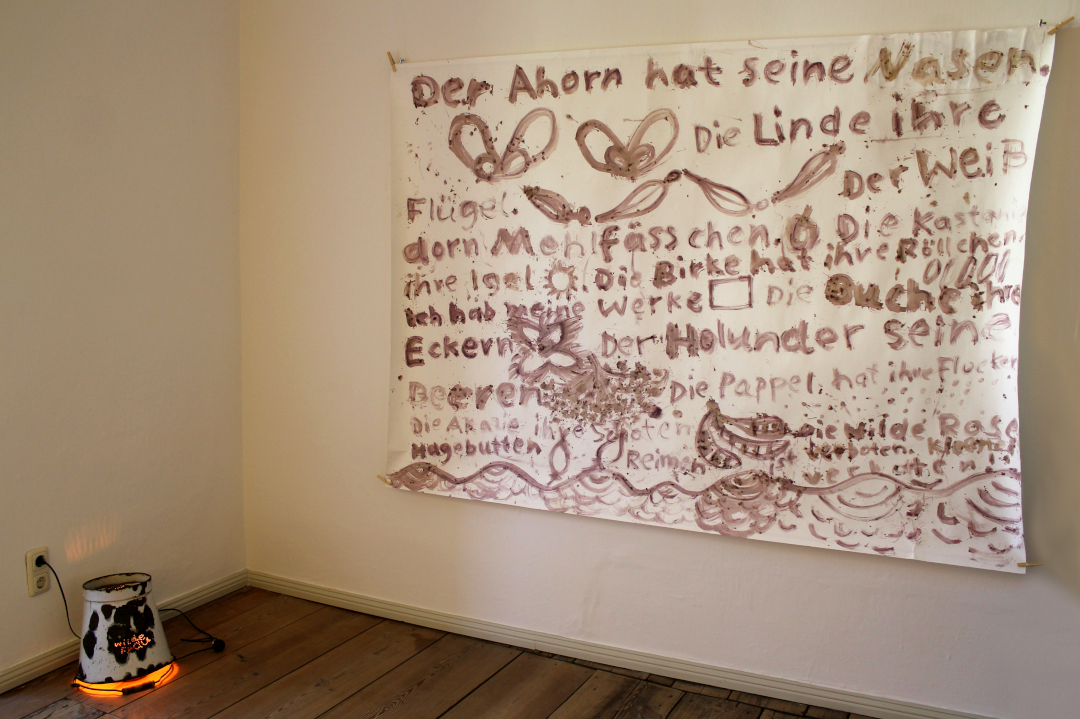 Der Ahorn hat seine Nasen.
Die Linde ihre
Flügel. Der Weiß
dorn Mehlfässchen. Die Kastanie
ihre Igel. Die Birke hat ihre Röllchen.
Ich hab meine Werke Die Buche ihre
Eckern Der Holunder seine
Beeren Die Pappel hat ihre Flocken
Die Akazie ihre Schoten Die Wilde Rose
Hagebutten Reimen ist verboten.
verboten
wilde